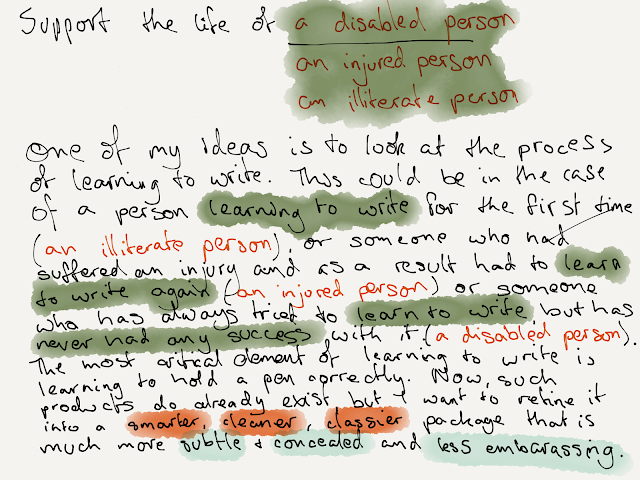 Support the life of a disabled person
an injured person
an illiterate person
One of my ideas is to look at the process
of learning to write. This could be in the case
of a person learning to write for the first time
(an illiterate person), or someone who had
suffered an injury and as a result had to learn
to write again (an injured person) or someone
who has always tried to learn to write but has
never had any success with it (a disabled person).
The most critical element of learning to write is
learning to hold a pen correctly. Now, such
products do already exist but I want to refine it
into a smarter, cleaner, classier package that is
much more subtle & concealed and less embarassing.